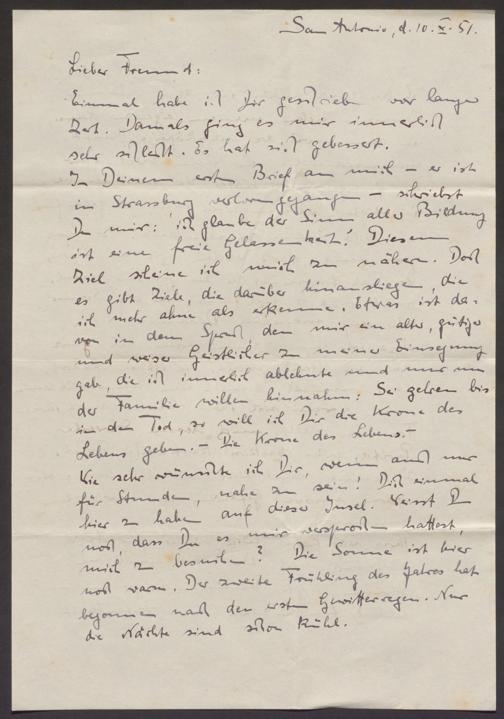 San Antonio, d. 10. X. 51.
Lieber Freund:
Einmal habe ich Dir geschrieben vor langer
Zeit. Damals ging es mir innerlich
sehr schlecht. Es hat sich gebessert.
In Deinem ersten Brief an mich – er ist
in Strassburg verlorengegangen – schriebst
Du mir: "ich glaube der Sinn aller Bildung
ist eine freie Gelassenheit". Diesem
Ziel scheine ich mich zu nähern. Doch
es gibt Ziele, die darüber hinausliegen, die
ich mehr ahne als erkenne. Etwas ist da-
von in dem Spruch, den mir ein alter, gütiger
und weiser Geistlicher zu meiner Einsegnung
gab, die ich innerlich ablehnte und nur um
der Familie willen hinnahm: Sei getreu bis
in den Tod, so will ich Dir die Krone des
Lebens geben. – Die Krone des Lebens. –
Wie sehr wünschte ich Dir, wenn auch nur
für Stunden, nahe zu sein! Dich einmal
hier zu haben auf dieser Insel. Weisst Du
noch, dass Du es mir versprochen hattest,
mich zu besuchen? Die Sonne ist hier
noch warm. Der zweite Frühling des Jahres hat
begonnen nach den ersten Gewitterregen. Nur
die Nächte sind schon kühl.